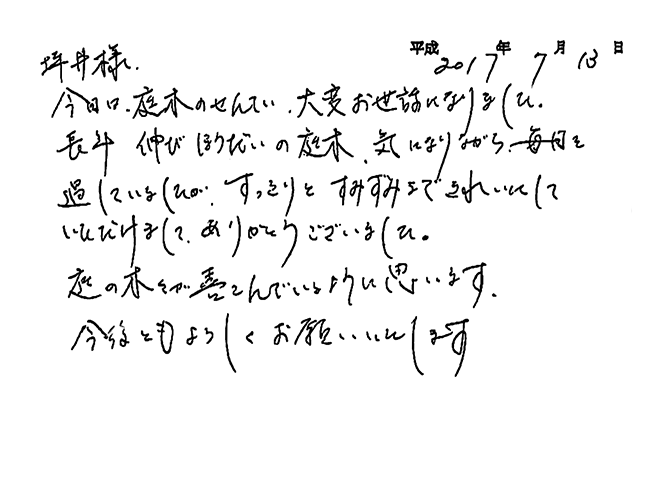 平成 2017年 7月 13日
坪井様、
今日は、庭木のせんてい、大変お世話になりました。
長年 伸びほうだいの庭木、気になりながら、毎日を
過していましたが、すっきりと すみずみまできれいにして
いただけまして、ありがとうございました。
庭の木々が喜こんでいるように思います。
今後ともよろしくお願いいたします